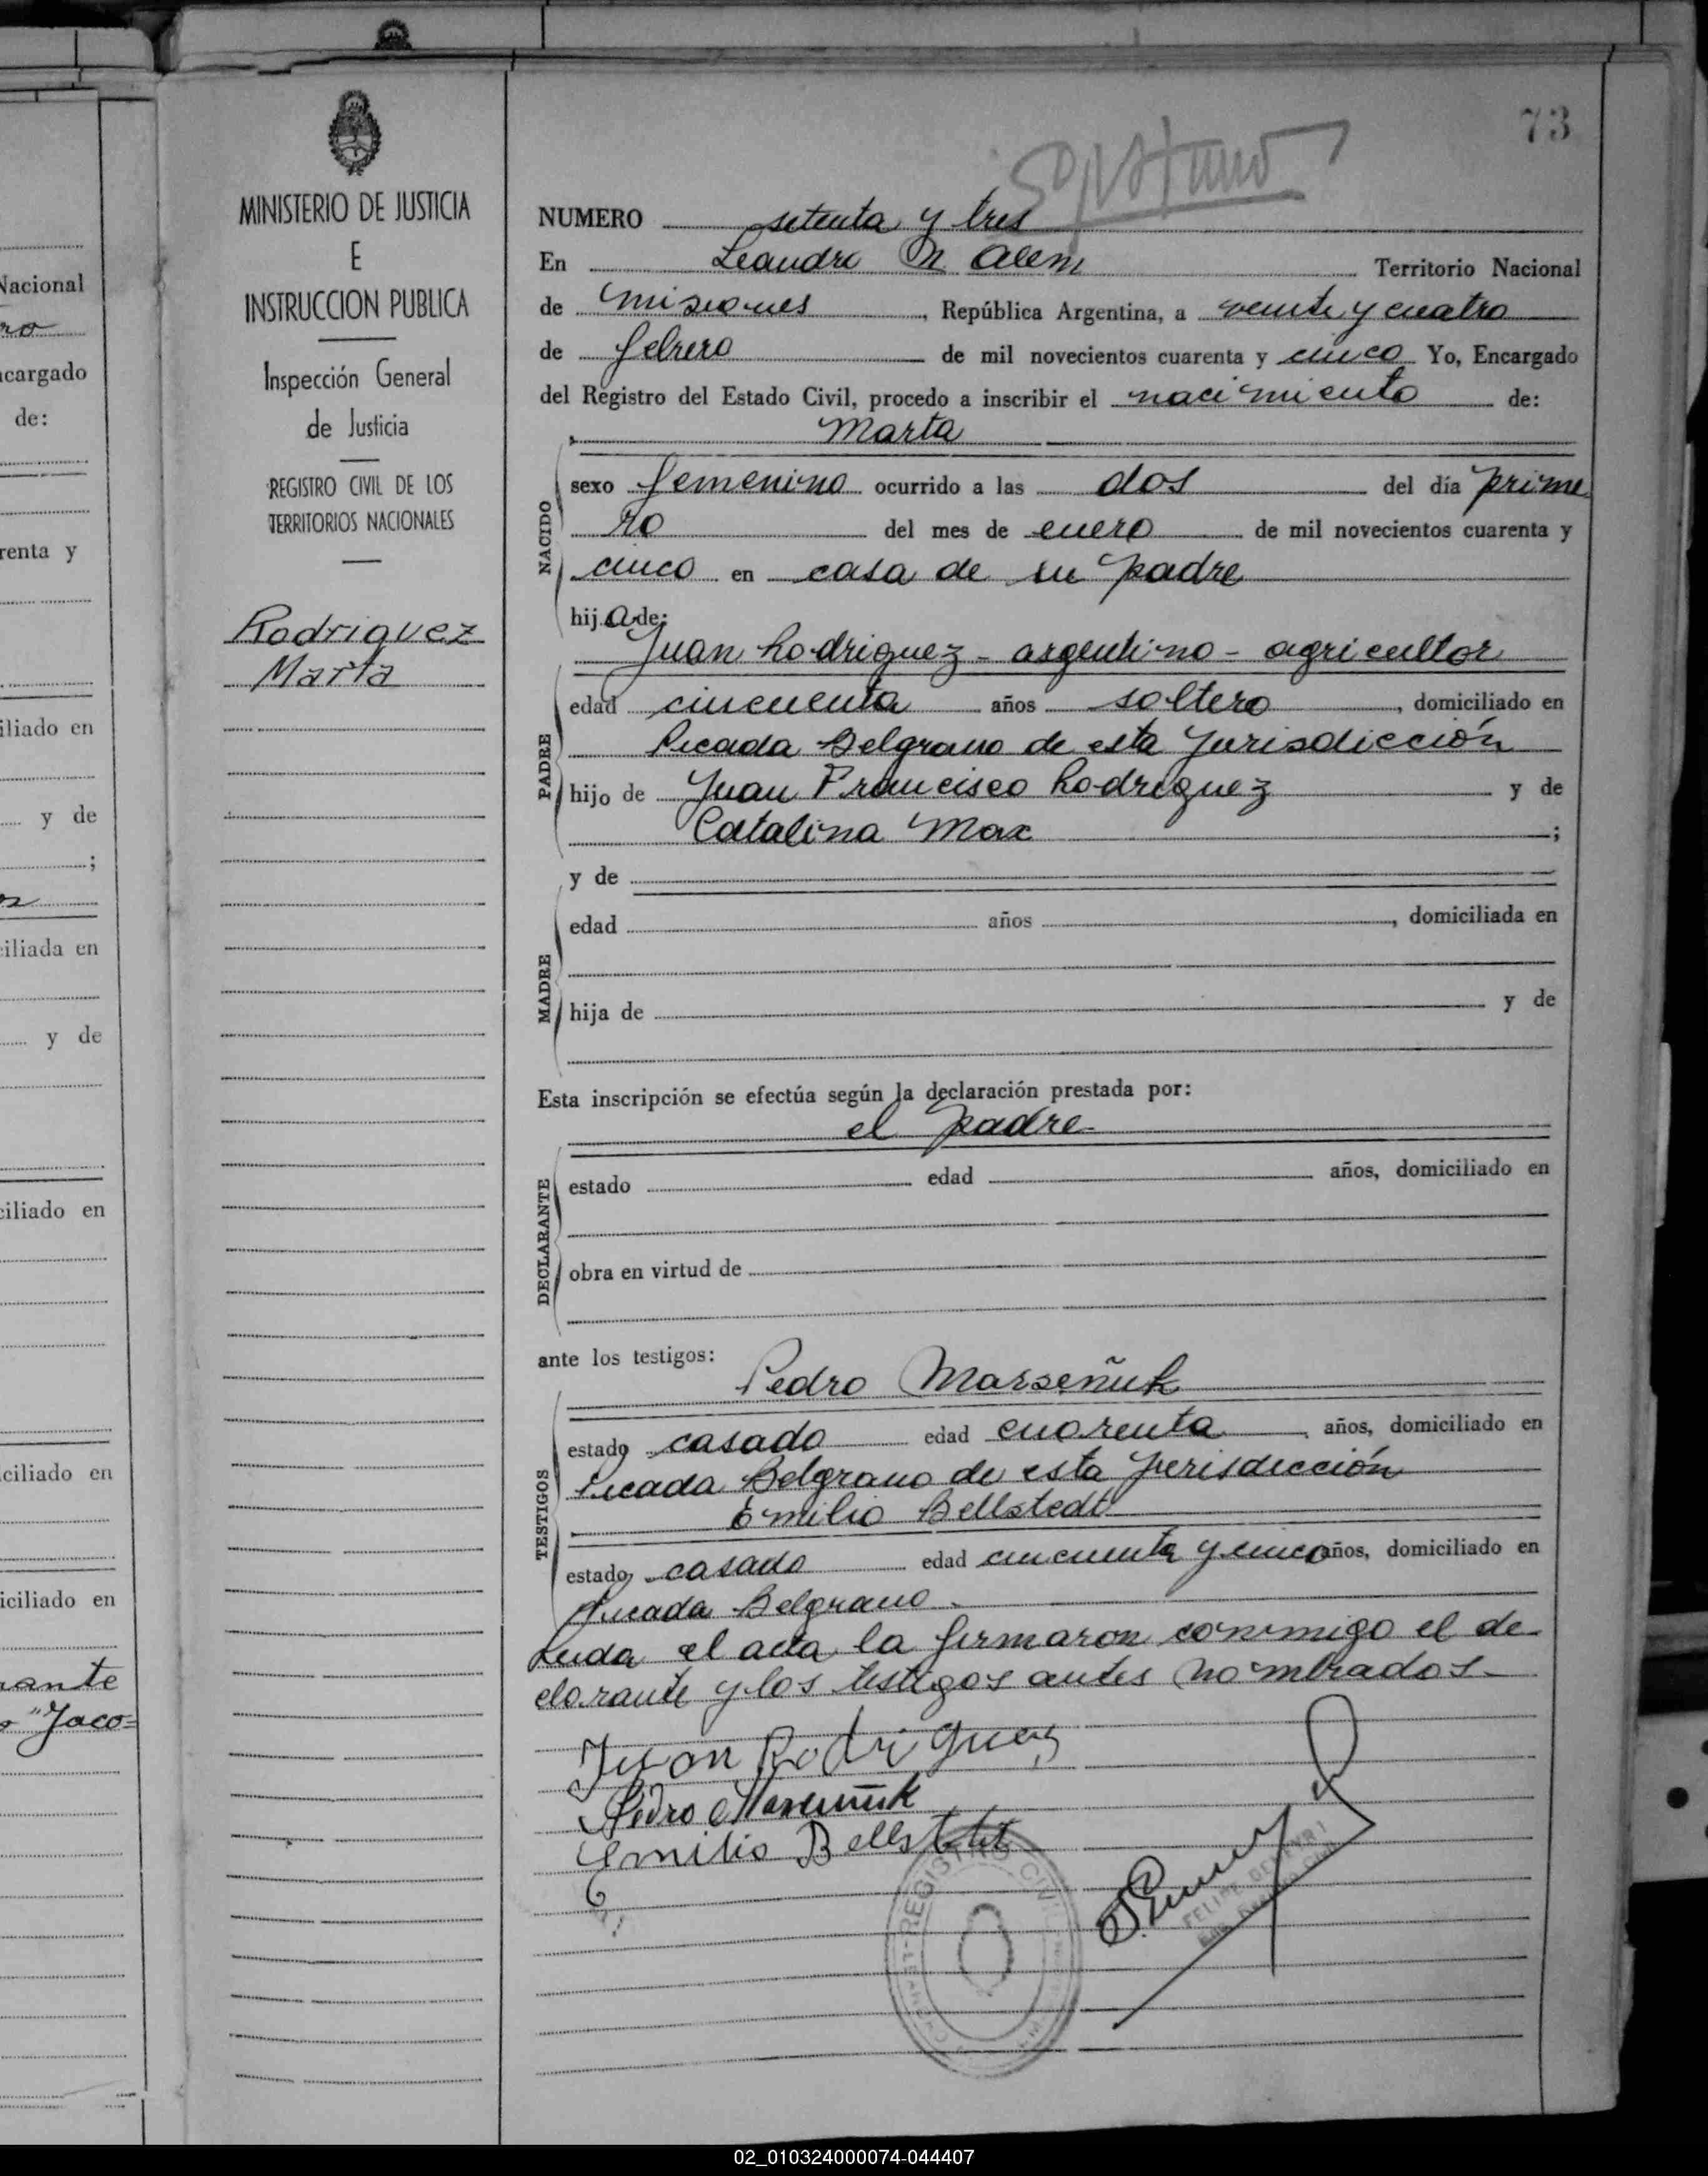 73
NUMERO setenta y tres
En Leandro N. Alem Territorio Nacional
de Misiones, República Argentina, a veinte y cuatro
de febrero de mil novecientos cuarenta y cinco Yo, Encargado
del Registro del Estado Civil, procedo a inscribir el nacimiento de:
Marta
NACIDO
sexo femenino ocurrido a las dos del día prime
ro del mes de enero de mil novecientos cuarenta y
cinco en casa de su padre
hija de:
Juan Rodriguez - argentino - agricultor
PADRE
edad cincuenta años soltero, domiciliado en
Picada Belgrano de esta Jurisdicción
hijo de Juan Francisco Rodriguez y de
Catalina Max;
y de
MADRE
edad años, domiciliada en
hija de y de
Esta inscripción se efectúa según la declaración prestada por:
el padre
DECLARANTE
estado edad años, domiciliado en
obra en virtud de
ante los testigos:
Pedro Marseñuk
TESTIGOS
estado casado edad cuarenta años, domiciliado en
Picada Belgrano de esta Jurisdicción
Emilio Bellstedt
estado casado edad cincuenta y cinco años, domiciliado en
Picada Belgrano
Leida el acta la firmaron conmigo el de-
clarante y los testigos antes nombrados-
Juan Rodriguez
Pedro Marseñuk
Emilio Bellstedt
REGISTRO CIVIL
MINISTERIO DE JUSTICIA
E
INSTRUCCION PUBLICA
Inspección General
de Justicia
REGISTRO CIVIL DE LOS
TERRITORIOS NACIONALES
Rodriguez
Marta
Nacional
ro
ncargado
de:
renta y
iliado en
y de
;
iliada en
y de
ciliado en
ciliado en
iciliado en
rante
"Jaco=
02_010324000074-044407